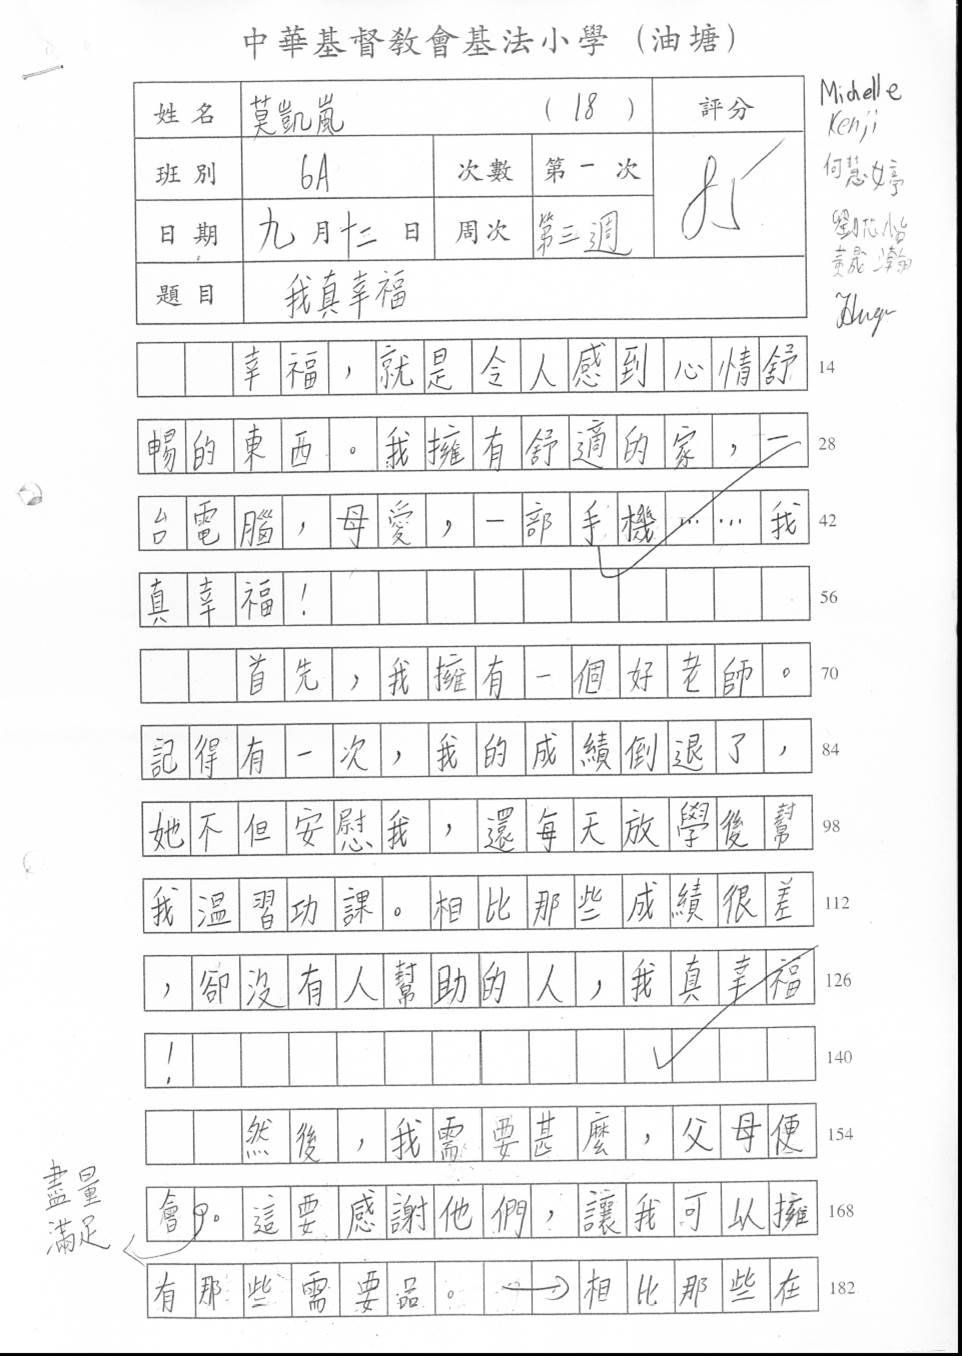 中華基督教會基法小學（油塘）
姓名 莫凱嵐 （18） 評分
班別 6A 次數 第一次 85
日期 九月十二日 周次 第三週
題目 我真幸福
Michelle
Kenji
何慧婷
幸福，就是令人感到心情舒 14
暢的東西。我擁有舒適的家，一 28
台電腦，母愛，一部手機……我 42
真幸福！ 56
首先，我擁有一個好老師。 70
記得有一次，我的成績倒退了， 84
她不但安慰我，還每天放學後幫 98
我溫習功課。相比那些成績很差 112
，卻沒有人幫助的人，我真幸福 126
！ 140
然後，我需要甚麼，父母便 154
會。這要感謝他們，讓我可以擁 168
盡量
滿足
有那些需要品。相比那些在 182